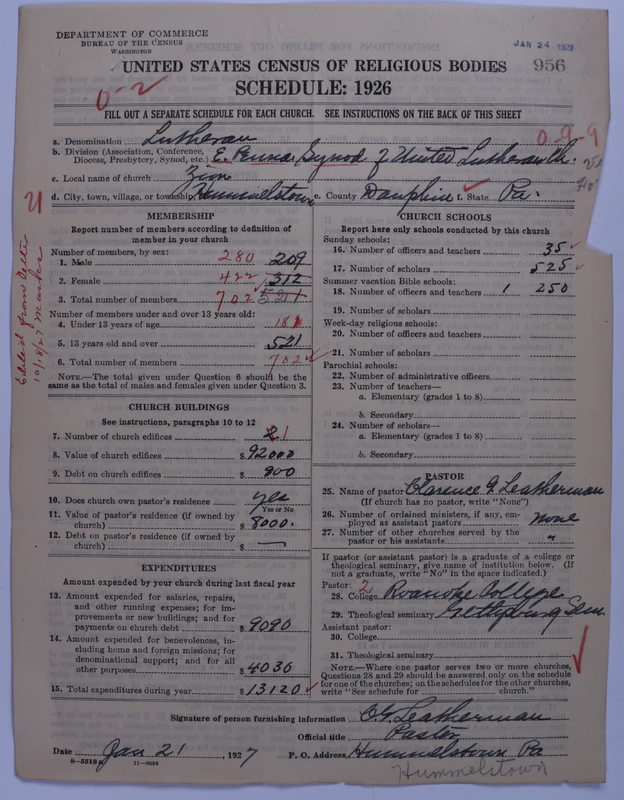 DEPARTMENT OF COMMERCE
BUREAU OF THE CENSUS
WASHINGTON
JAN 24 1927
956
UNITED STATES CENSUS OF RELIGIOUS BODIES
SCHEDULE: 1926
0-2
FILL OUT A SEPARATE SCHEDULE FOR EACH CHURCH. SEE INSTRUCTIONS ON THE BACK OF THIS SHEET
0-9-9
a. Denomination Lutheran
b. Division (Association, Conference, Diocese, Presbytery, Synod, etc.) E. Penna Synod of United Lutheran Ch.
c. Local name of church Zion
d. City, town, village, or township Hummelstown e. County Dauphin f. State Pa.
21
Edited from letter
10/18/27
MEMBERSHIP
Report number of members according to definition of
member in your church
Number of members, by sex:
1. Male 280 209
2. Female 422 312
3. Total number of members 702 521
Number of members under and over 13 years old:
4. Under 13 years of age 181
5. 13 years old and over 521
6. Total number of members 702
NOTE.—The total given under Question 6 should be the
same as the total of males and females given under Question 3.
CHURCH BUILDINGS
See instructions, paragraphs 10 to 12
7. Number of church edifices 2 1
8. Value of church edifices $ 92000
9. Debt on church edifices $ 900
10. Does church own pastor's residence yes
Yes or No
11. Value of pastor's residence (if owned by
church) $ 8000.
12. Debt on pastor's residence (if owned by
church) $ —
EXPENDITURES
Amount expended by your church during last fiscal year
13. Amount expended for salaries, repairs,
and other running expenses; for im-
provements or new buildings; and for
payments on church debt $ 9090
14. Amount expended for benevolences, in-
cluding home and foreign missions; for
denominational support; and for all
other purposes $ 4030
15. Total expenditures during year $ 13120
CHURCH SCHOOLS
Report here only schools conducted by this church
Sunday schools:
16. Number of officers and teachers 35
17. Number of scholars 525
Summer vacation Bible schools:
18. Number of officers and teachers 1 250
19. Number of scholars
Week-day religious schools:
20. Number of officers and teachers
21. Number of scholars
Parochial schools:
22. Number of administrative officers
23. Number of teachers—
a. Elementary (grades 1 to 8)
b. Secondary
24. Number of scholars—
a. Elementary (grades 1 to 8)
b. Secondary
PASTOR
25. Name of pastor Clarence G. Leatherman
(If church has no pastor, write "None")
26. Number of ordained ministers, if any, em-
ployed as assistant pastors none
27. Number of other churches served by the
pastor or his assistants "
If pastor (or assistant pastor) is a graduate of a college or
theological seminary, give name of institution below. (If
not a graduate, write "No" in the space indicated.)
Pastor: 2
28. College Roanoke College
29. Theological seminary Gettysburg Sem.
Assistant pastor:
30. College
31. Theological seminary
NOTE.—Where one pastor serves two or more churches,
Questions 28 and 29 should be answered only on the schedule
for one of the churches; on the schedules for the other churches,
write "See schedule for ........ church."
Signature of person furnishing information C. G. Leatherman
Official title Pastor
Date Jan 21, 1927 P. O. Address Hummelstown Pa
8—5518 11—9054
Hummelstown